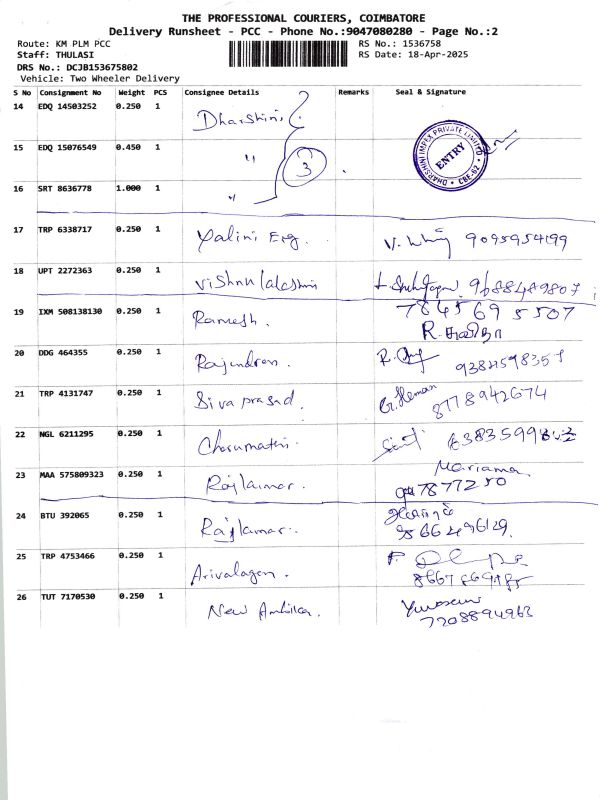 THE PROFESSIONAL COURIERS, COIMBATORE
Delivery Runsheet - PCC - Phone No.:9047080280 - Page No.:2
Route: KM PLM PCC
Staff: THULASI
DRS No.: DCJB153675802
Vehicle: Two Wheeler Delivery
RS No.: 1536758
RS Date: 18-Apr-2025
S No Consignment No Weight PCS Consignee Details Remarks Seal & Signature
14 EDQ 14503252 0.250 1 Dharshini
15 EDQ 15076549 0.450 1 " 3
DHARSHINI IMPEX PRIVATE LIMITED
ENTRY
CBE-62
16 SRT 8636778 1.000 1 "
17 TRP 6338717 0.250 1 Yalini Eng. 9095954199
18 UPT 2272363 0.250 1 Vishnu lakshmi 9688489807
19 IXM 508138130 0.250 1 Ramesh. 78456 95507
20 DDG 464355 0.250 1 Rajendran.
21 TRP 4131747 0.250 1 Siva prasad. 8778942674
22 NGL 6211295 0.250 1 Charumathi.
23 MAA 575809323 0.250 1 Rajkumar. Mariama
7877250
24 BTU 392065 0.250 1 Rajkumar.
25 TRP 4753466 0.250 1 Arivalagan.
26 TUT 7170530 0.250 1 New Ambika.
7208894963